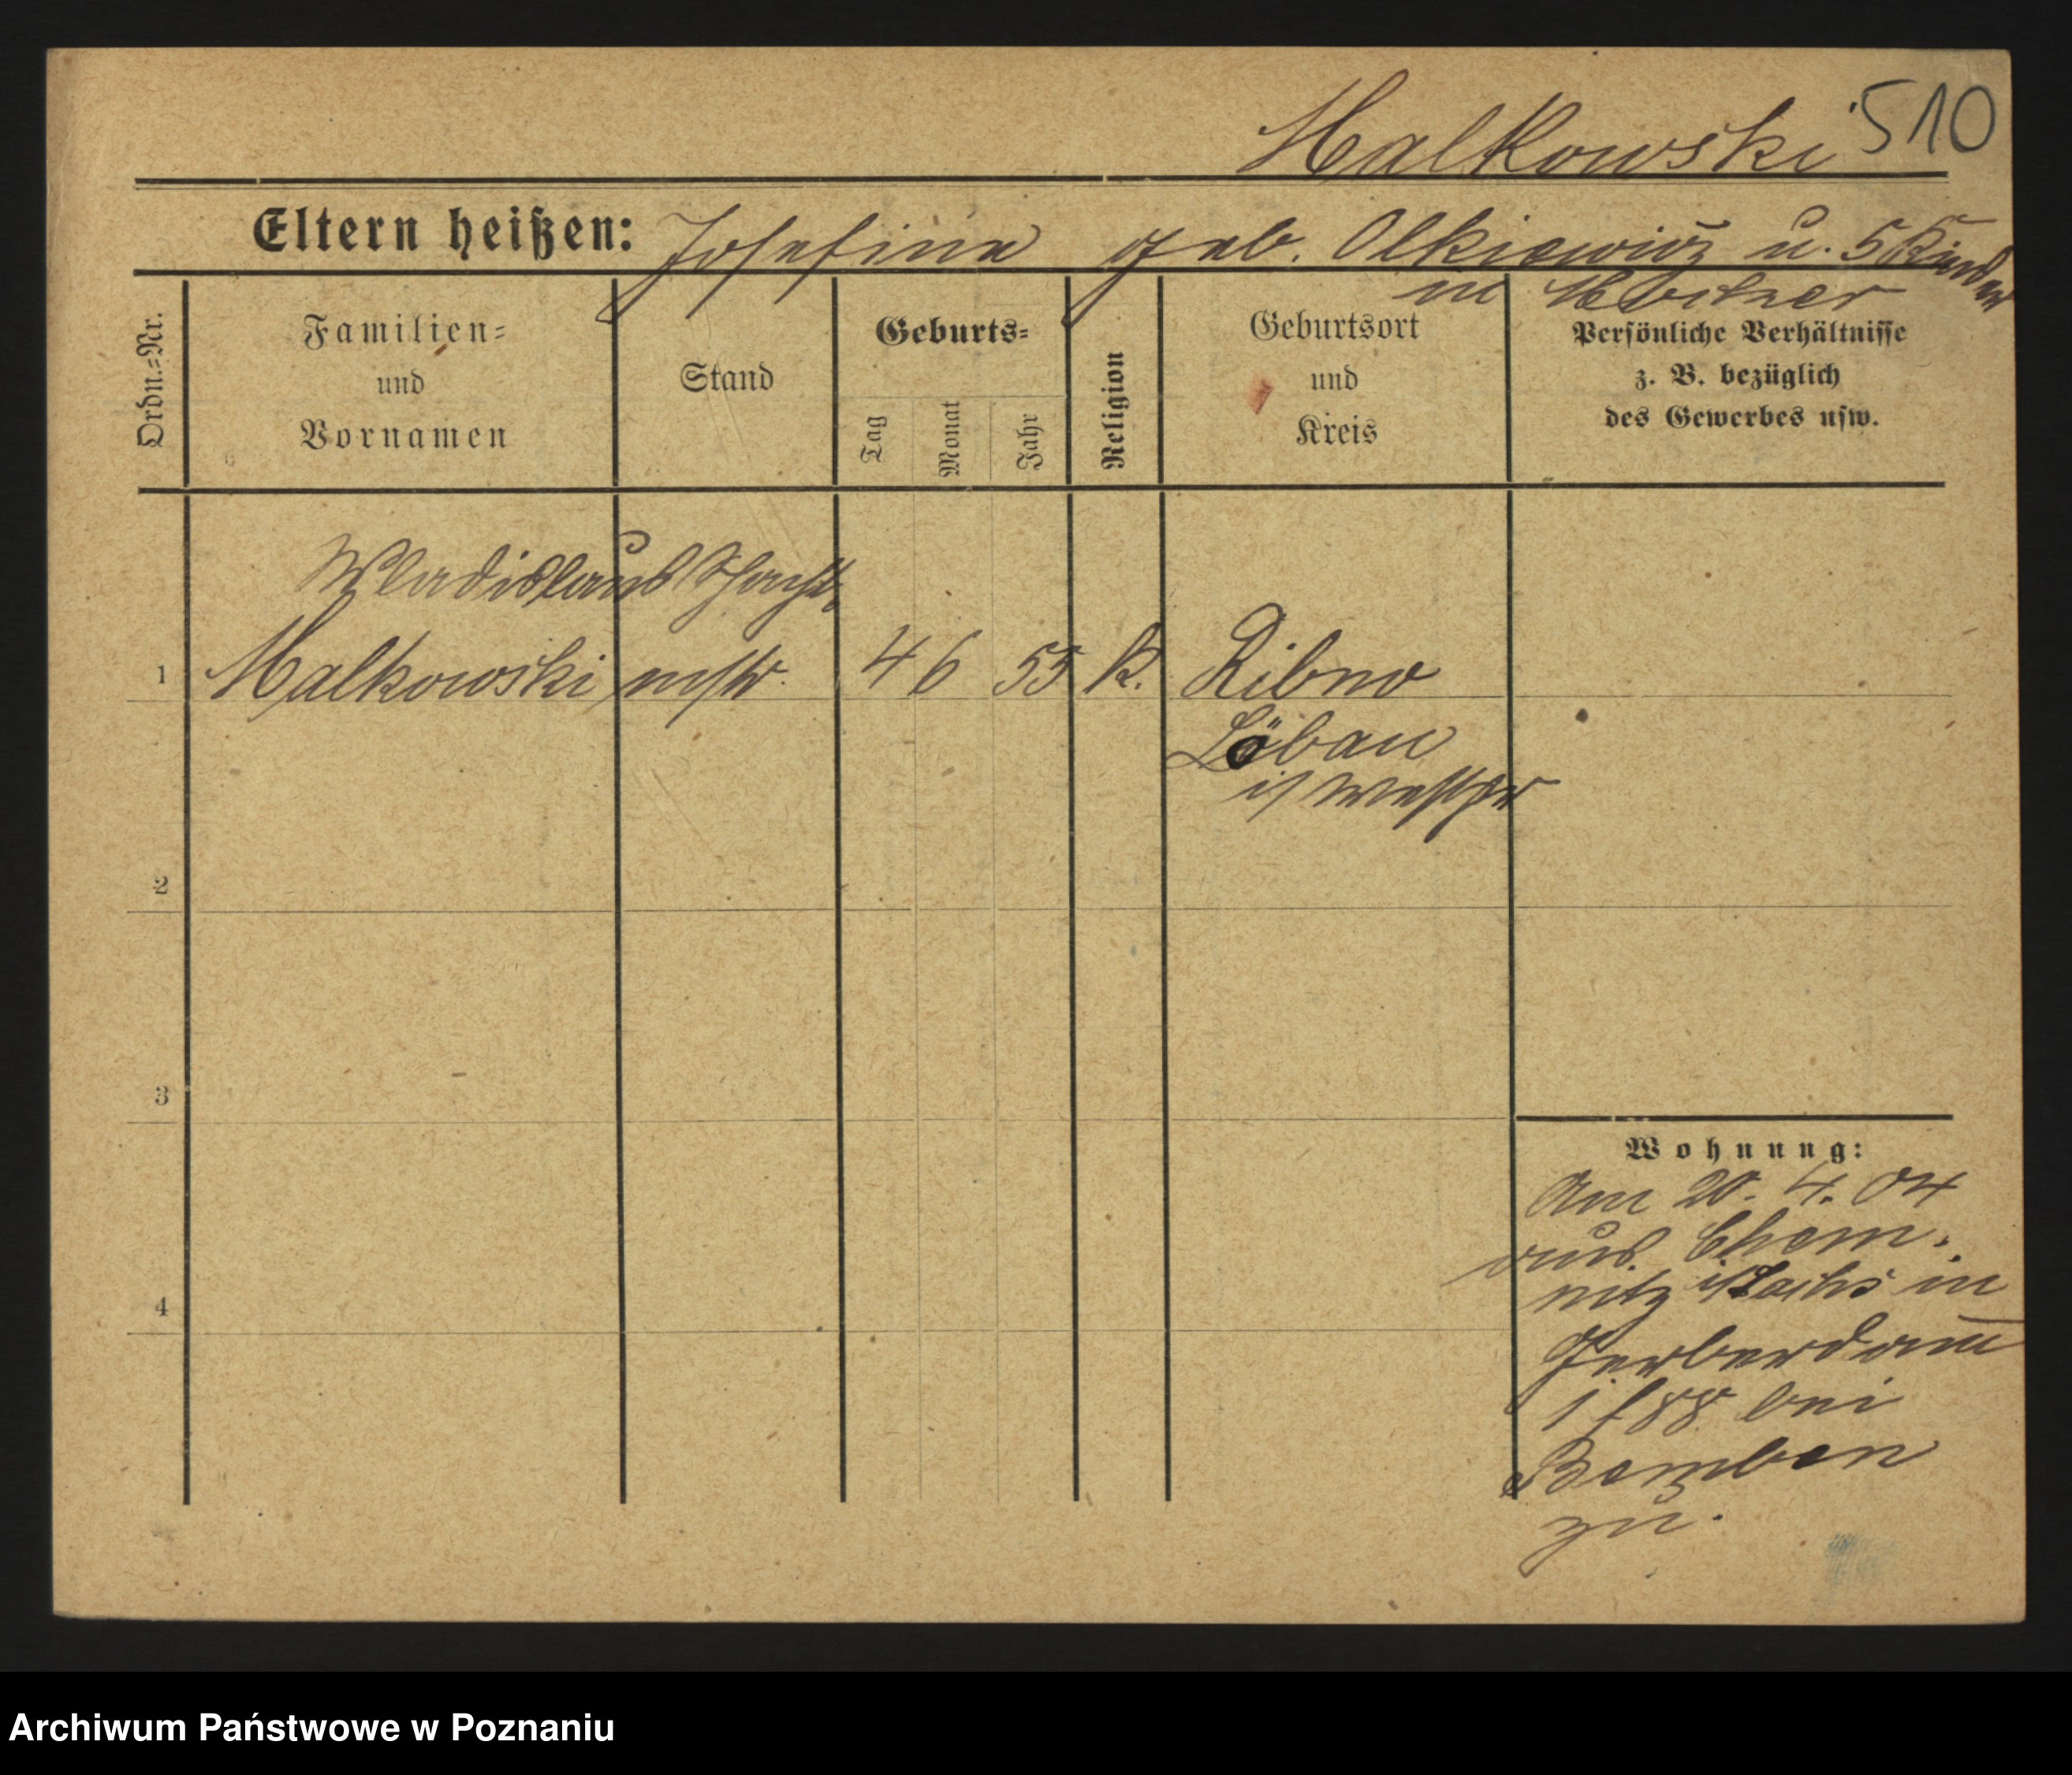 Malkowski 510
Eltern heißen: Josefine geb. Olkiewicz u. 5 Kinder
in
Ordn.=Nr.
Familien=
und
Vornamen
Stand
Geburts=
Tag
Monat
Jahr
Religion
Geburtsort
und
Kreis
Persönliche Verhältnisse
z. B. bezüglich
des Gewerbes usw.
Wladislaus Schacht
1 Malkowski mstr. 4 6 55 K. Ribno
Löbau
i/ Westpr
2
3
4
Wohnung:
Am 20. 4. 04
aus Chem=
nitz i/Sachs in
Gerberdam
1 f 88 bei
zu.
Archiwum Państwowe w Poznaniu